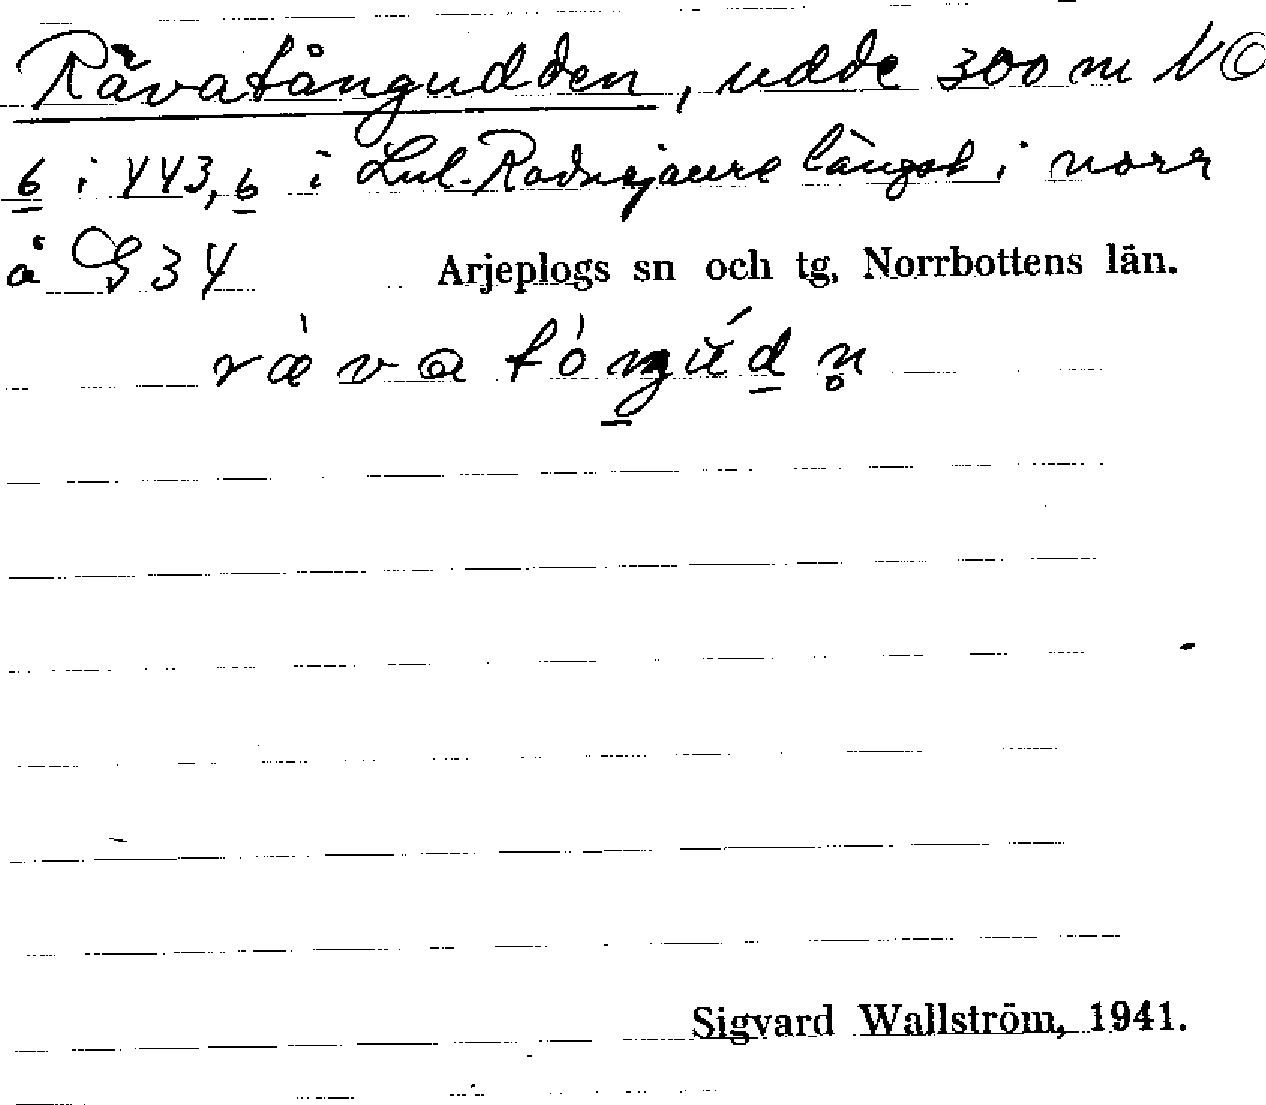 Rävatångudden, udde 300 m NO
6 i 443,6 i Lul.-Radnejaure längst i norr
å G 34 Arjeplogs sn och tg, Norrbottens län.
Sigvard Wallström, 1941.